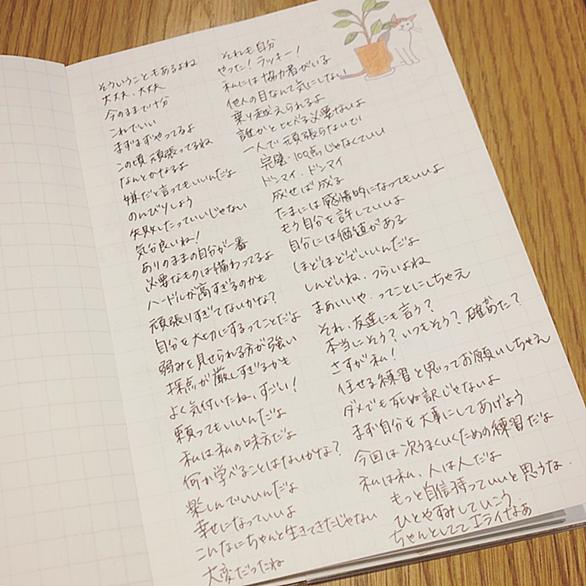 そういうこともあるよね
大丈夫、大丈夫
今のままで十分
これでいい
まずまずやってるよ
この頃頑張ってるね
なんとかなるよ
嫌だと言ってもいいんだよ
のんびりしよう
失敗したっていいじゃない
気分良いね!
ありのままの自分が一番
必要なものは備わってるよ
ハードルが高すぎるかも
頑張りすぎてないかな?
自分を大切にするってことだよ
弱みを見せられる方が強い
採点が厳しすぎるかも
よく気付いたね、すごい!
頼ってもいいんだよ
私は私の味方だよ
何か学べることはないかな?
楽しんでいいんだよ
幸せになっていいよ
こんなにちゃんと生きてきたじゃない
大変だったね
それも自分
やった!ラッキー!
私には協力者がいる
他人の目なんて気にしない
乗り越えられるよ
誰かと比べる必要ないよ
一人で頑張らないで
完璧・100点じゃなくていい
ドンマイ、ドンマイ
成せば成る
たまには感情的になってもいいよ
もう自分を許していいよ
自分には価値がある
ほどほどでいいんだよ
しんどいね、つらいよね
まぁいいや、ってことにしちゃえ
それ、友達にも言う?
本当にそう?いつもそう?確かめた?
さすが私!
任せる練習と思ってお願いしちゃえ
ダメでも死ぬ訳じゃないよ
まず自分を大事にしてあげよう
今回は次うまくいくための練習だよ
私は私、人は人だよ
もっと自信持っていいと思うな
ひとやすみしていこう
ちゃんとしててエライなぁ